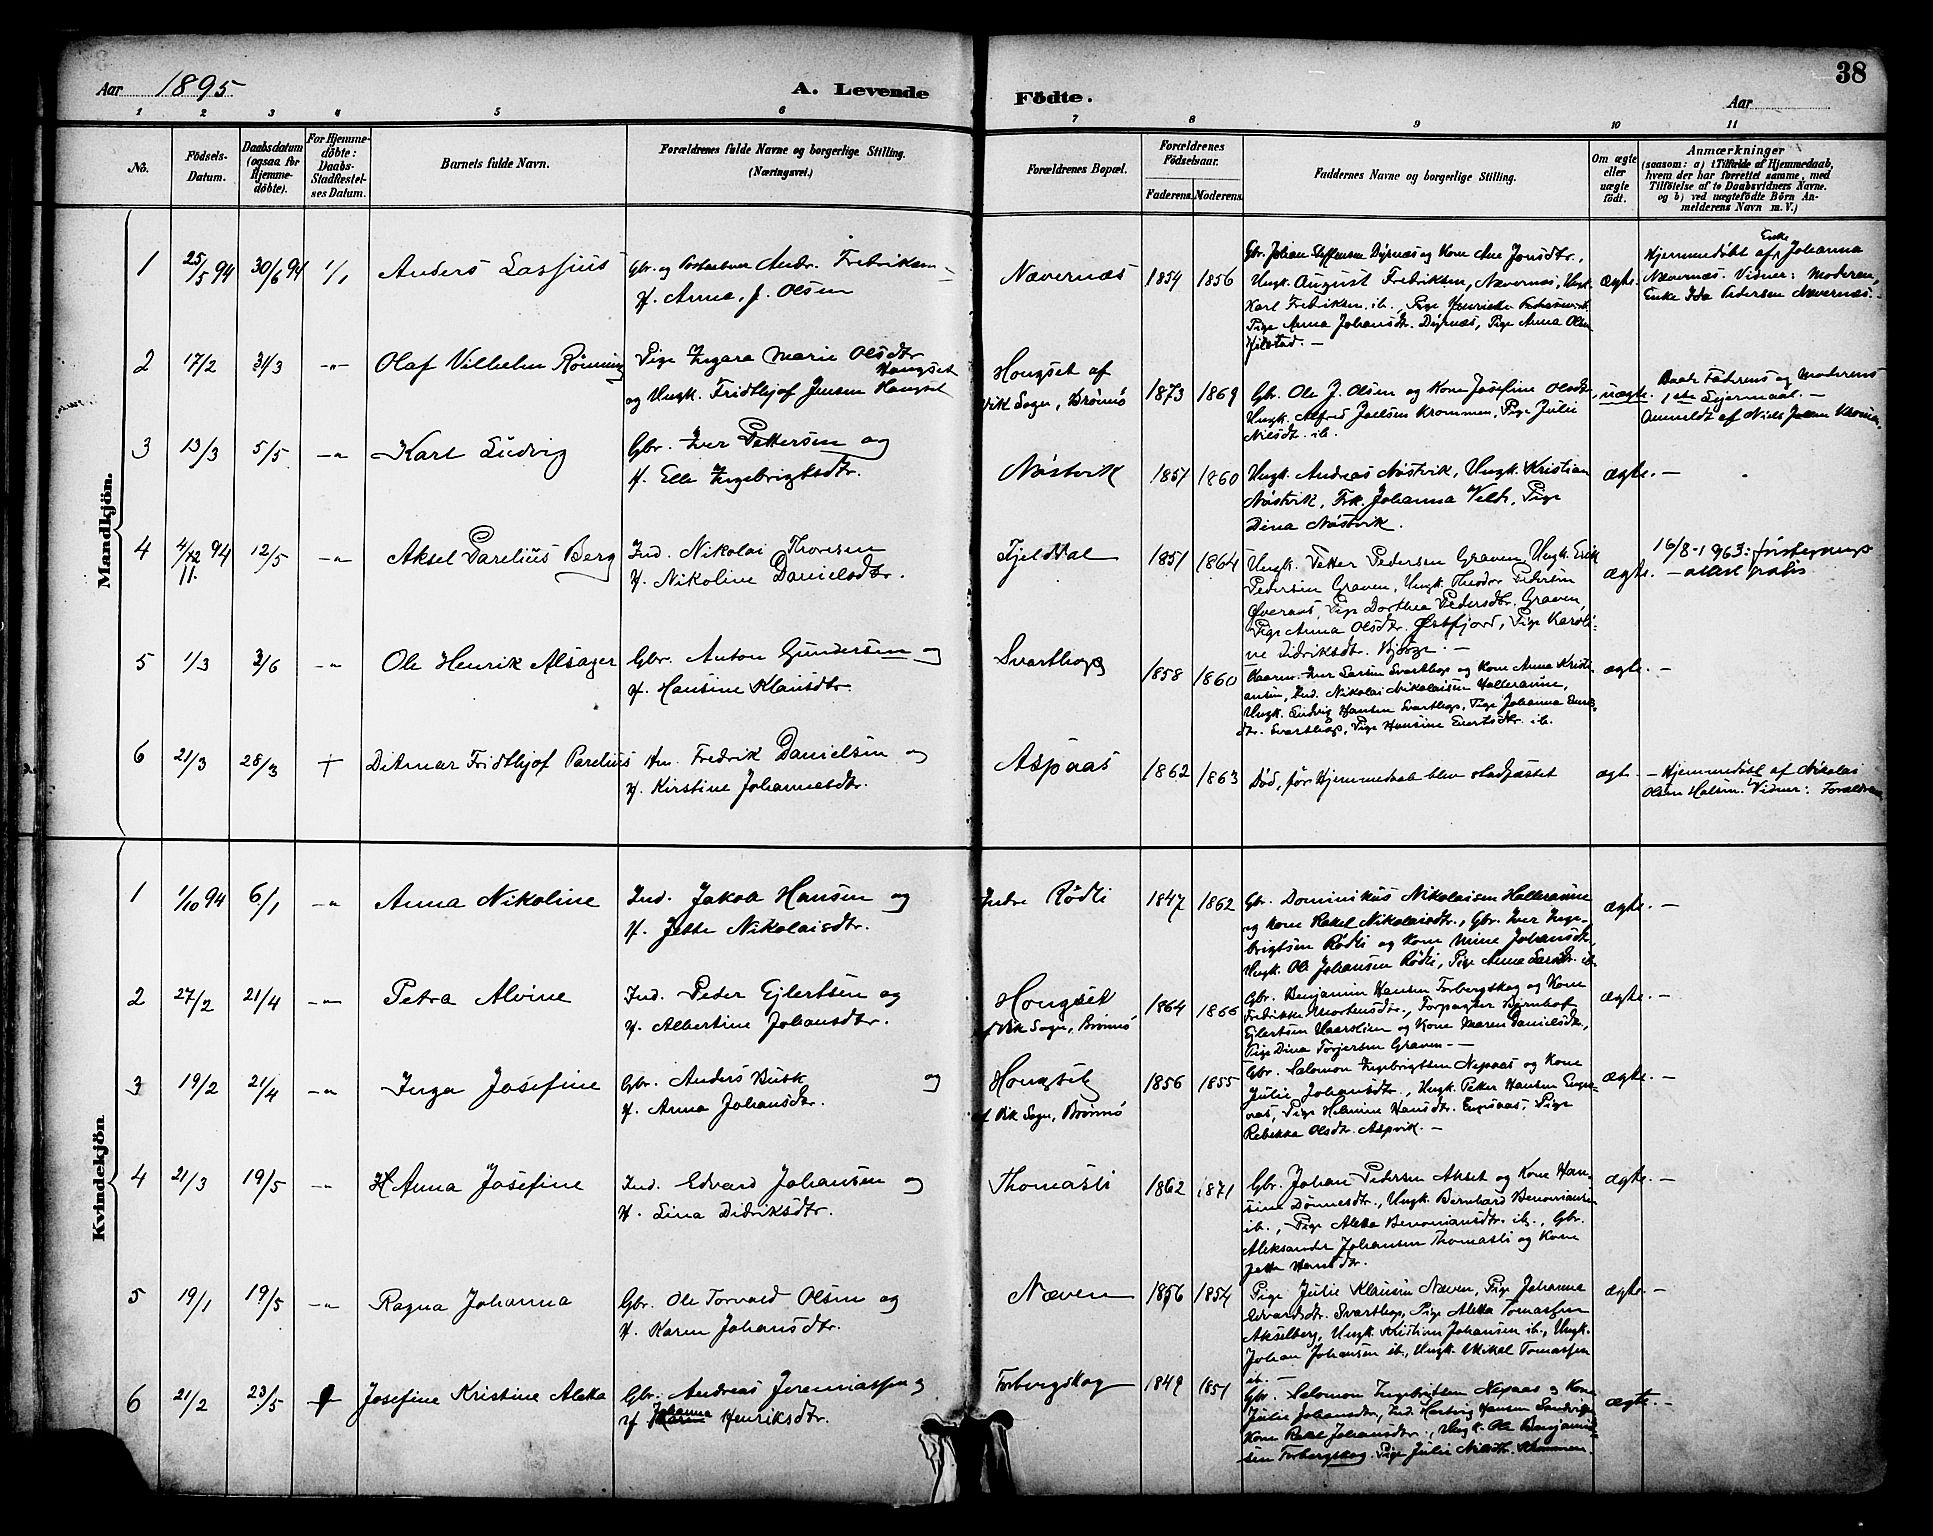 Aar 1895
A. Levende
Födte.
38
Aar
1 2 3 4 5 6 7 8 9 10 11
No.
Födsels-Datum.
Daabsdatum (ogsaa for Hjemmedöbte).
For Hjemmedöbte: Daabs-Stadfæstelses Datum.
Barnets fulde Navn.
Forældrenes fulde Navne og borgerlige Stilling. (Næringsvei.)
Forældrenes Bopæl.
Forældrenes Födselsaar.
Faderens. Moderens.
Faddernes Navne og borgerlige Stilling.
Om ægte eller uægte födt.
Anmærkninger
(saasom: a) i Tilfælde af Hjemmedaab, hvem der har forrettet samme, med Tilföielse af to Daabsvidners Navne. og b) ved uægtefödte Börn Anmelderens Navn m. V.)
Mandkjön.
1 25/5 94 30/6 94 1/1 Anders Lassius
Gbr. og Andr. Fredriksen
H. Anna J. Olsen
Nævernæs 1854 1856
Gbr. Johan Steffensen Dyrnæs og Kone Ane Jonsdtr.,
Ungk. August Fredriksen, Nævernæs, Ungk.
Karl Fredriksen ib., Pige Henriette
Pige Anna Johansdtr. Dyrnæs, Pige Anna Olsen
Hilstad. —
ægte.
Hjemmedöbt af Enke Johanna
Nævernæs. Vidner: Moderen,
Enke Ida Pedersen Nævernæs. —
2 17/2 31/3 -"- Olaf Vilhelm Rönning
Pige Ingara Marie Olsdtr. Hongset
og Ungk. Fridthjof Jensen Hongset
Hongset af
Vik Sogn, Brönnö 1873 1869
Gbr. Ole J. Olsen og Kone Josefine Olsdtr.
Ungk. Alfred Joelsen Krommen, Pige Julie
Nilsdtr. ib.
uægte.
Baade Faderens og Moderens
1ste Leiermaal. —
Anmeldt af Niels
3 13/3 5/5 -"- Karl Ludvig
Gbr. Iver Pettersen og
H. Elle Ingebrigtsdtr.
Nöstvik 1857 1860
Ungk. Andreas Nöstvik, Ungk. Kristian
Nöstvik, Frk. Johanna Pige
Dina Nöstvik.
ægte. —
4 4/12 94 11. 12/5 -"- Aksel Parelius Berg
Ind. Nikolai Thoresen
H. Nikoline Danielsdtr.
Fjeldal 1851 1864
Ungk. Petter Pedersen Graven, Ungk. Erik
Pedersen Graven, Ungk. Theodor Pedersen
Överaas, Pige Dorthea Pedersdtr. Graven,
Pige Anna Olsdtr. Östfjord, Pige Karoli-
ne Didriksdtr. —
ægte.
16/8-1963:
— attest gratis
5 1/3 3/6 -"- Ole Henrik Alsager
Gbr. Anton Gundersen og
H. Hansine Klausdtr.
Svarthop 1858 1860
Iver Larsen Svarthop og Kone Anna Kristi-
ansen, Ind. Nikolai Nikolaisen Halleraune,
Ungk. Ludvig Hansen Svarthop, Pige Johanna
dtr. Svarthop, Pige Hansine Evertsdtr. ib.
ægte. —
6 21/3 28/3 + Ditmar Fridthjof Parelius
Hm. Fredrik Danielsen og
H. Kirstine Johannesdtr.
Aspaas 1862 1863
Död, för Hjemmedaab blev stadfæstet
ægt.
— Hjemmedöbt af Nikolai
Olsen Halsen. Vidner: Forældrene
Kvindekjön
1 1/10 94 6/1 -"- Anna Nikoline
Ind. Jakob Hansen og
H. Jette Nikolaisdtr.
Indre Rödli 1847 1862
Gbr. Dominikus Nikolaisen Halleraune
og Kone Rakel Nikolaisdtr., Gbr. Iver Inge-
brigtsen Rödli og Kone Mine Johansdtr.
Ungk. Ole Johansen Rödli, Pige Anna Larsdtr. ib.
ægte. —
2 27/2 21/4 -"- Petra Alvine
Ind. Peder Ejlertsen og
H. Albertine Johansdtr.
Hongset
af Vik Sogn, Brönnö 1864 1866
Gbr. Benjamin Hansen Forbergskog og Kone
Fredrikke Mortensdtr., Forpagter Bernhof
Ejlertsen Haarslien og Kone Maren Danielsdtr.,
Pige Dina Torjersen Graven. —
ægte. —
3 19/2 21/4 -"- Inga Josefine
Gbr. Anders Busk og
H. Anna Johansdtr.
Hongset
af Vik Sogn, Brönnö 1856 1855
Gbr. Salomon Ingebrigtsen Nepaas og Kone
Julie Johansdtr., Ungk. Petter Hansen Enges-
aas, Pige Helmine Hansdtr. Engesaas, Pige
Rebekka Olsdtr. Aspvik. —
ægte. —
4 21/3 19/5 -"- Anna Josefine
Ind. Edvard Johansen og
H. Lina Didriksdtr.
Thomasli 1862 1871
Gbr. Johan Pedersen Akset og Kone Han-
sine Dönnesdtr., Ungk. Bernhard Benoniansen
ib., Pige Aleta Benoniansdtr. ib., Gbr.
Aleksander Johansen Thomasli og Kone
Jetta Hansdtr.
ægte. —
5 19/1 19/5 -"- Ragna Johanna
Gbr. Ole Torvald Olsen og
H. Karen Johansdtr.
Næven 1856 1854
Pige Julie Klausen Næven, Pige Johanna
Edvardsdtr. Svarthop, Pige Aleta Tomassen
Akselberg, Ungk. Kristian Johansen ib., Ungk.
Johan Johansen ib., Ungk. Mikal Tomassen
ib. —
ægte. —
6 21/2 23/5 Josefine Kristine Aleta
Gbr. Andreas Jeremiassen og
H. Johanna Henriksdtr.
Forbergskog 1849 1851
Gbr. Salomon Ingebrigtsen Nepaas og Kone
Julie Johansdtr., Ind. Hartvig Hansen
Kone Rakel Johansdtr., Ungk. Ole Benjamin-
sen Forbergskog, Pige Julie Nilsdtr. Krommen.
ægte. —